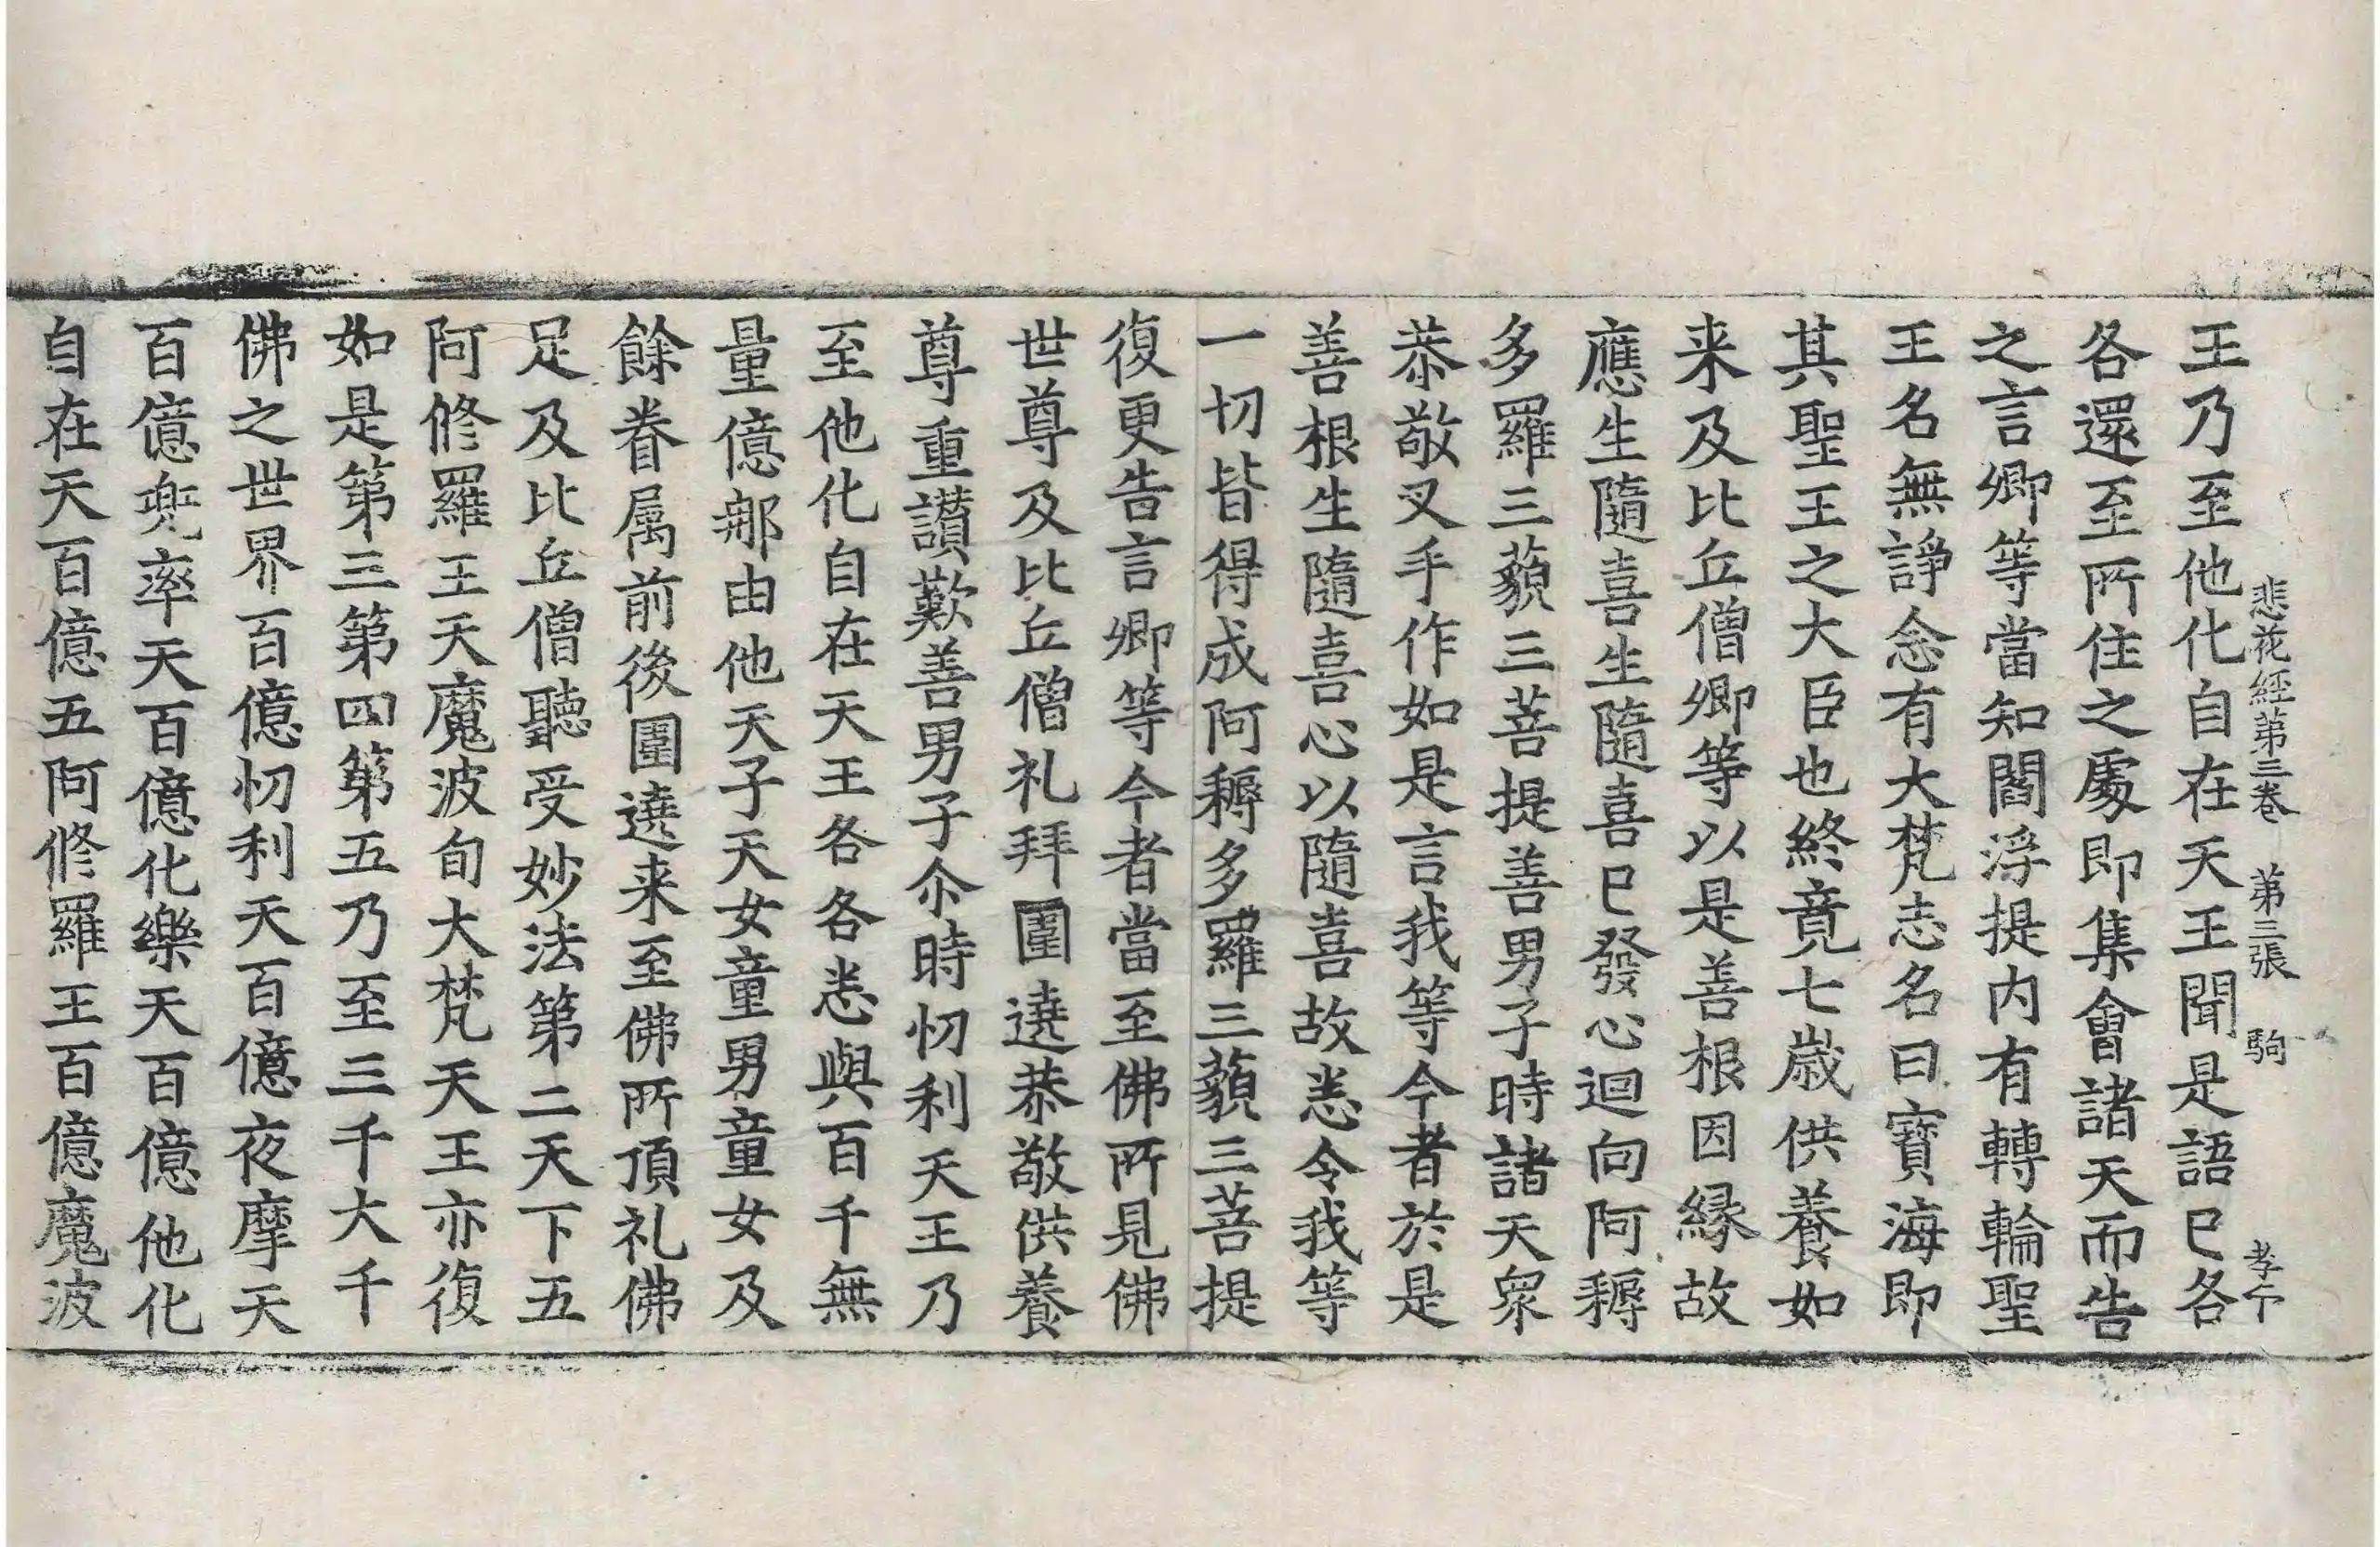 悲花經第三卷　第三張　駒　孝今
王乃至他化自在天王聞是語已各
各還至所住之處即集會諸天而告
之言卿等當知閻浮提内有轉輪聖
王名無諍念有大梵志名曰寶海即
其聖王之大臣也終竟七歲供養如
来及比丘僧卿等以是善根因縁故
應生隨喜生隨喜已發心迴向阿耨
多羅三藐三菩提善男子時諸天衆
恭敬叉手作如是言我等今者於是
善根生隨喜心以隨喜故悉令我等
一切皆得成阿耨多羅三藐三菩提
復更告言卿等今者當至佛所見佛
世尊及比丘僧礼拜圍遶恭敬供養
尊重讃歎善男子尒時忉利天王乃
至他化自在天王各各悉與百千無
量億那由他天子天女童男童女及
餘眷属前後圍遶来至佛所頂礼佛
足及比丘僧聽受妙法第二天下五
阿修羅王天魔波旬大梵天王亦復
如是第三第四第五乃至三千大千
佛之世界百億忉利天百億夜摩天
百億兜率天百億化樂天百億他化
自在天百億五阿修羅王百億魔波